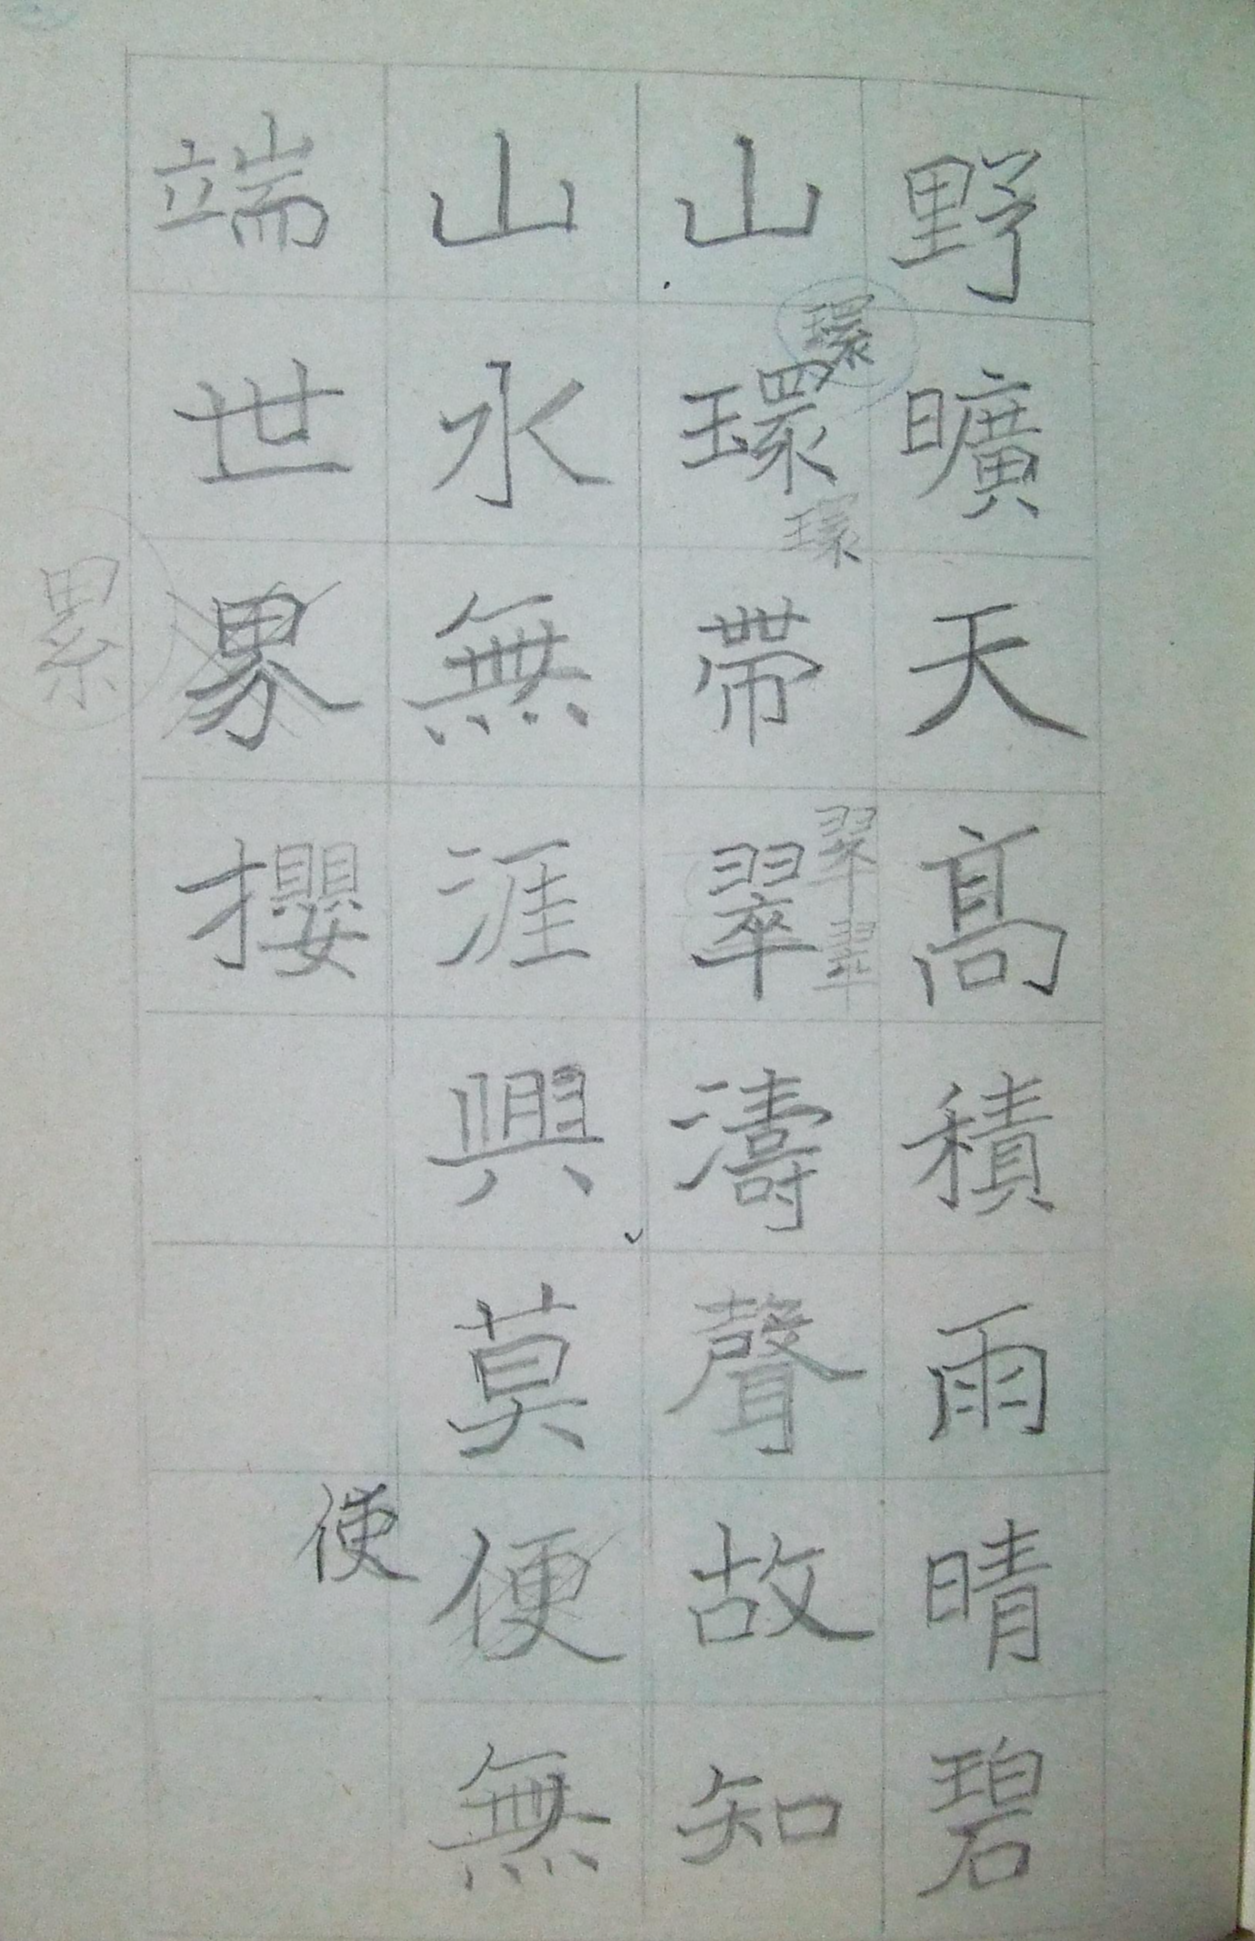 野曠天髙積雨晴碧
山環帶翠濤聲故知
環
環
翠
翠
山水無涯興莫便無
使
端世攖
累